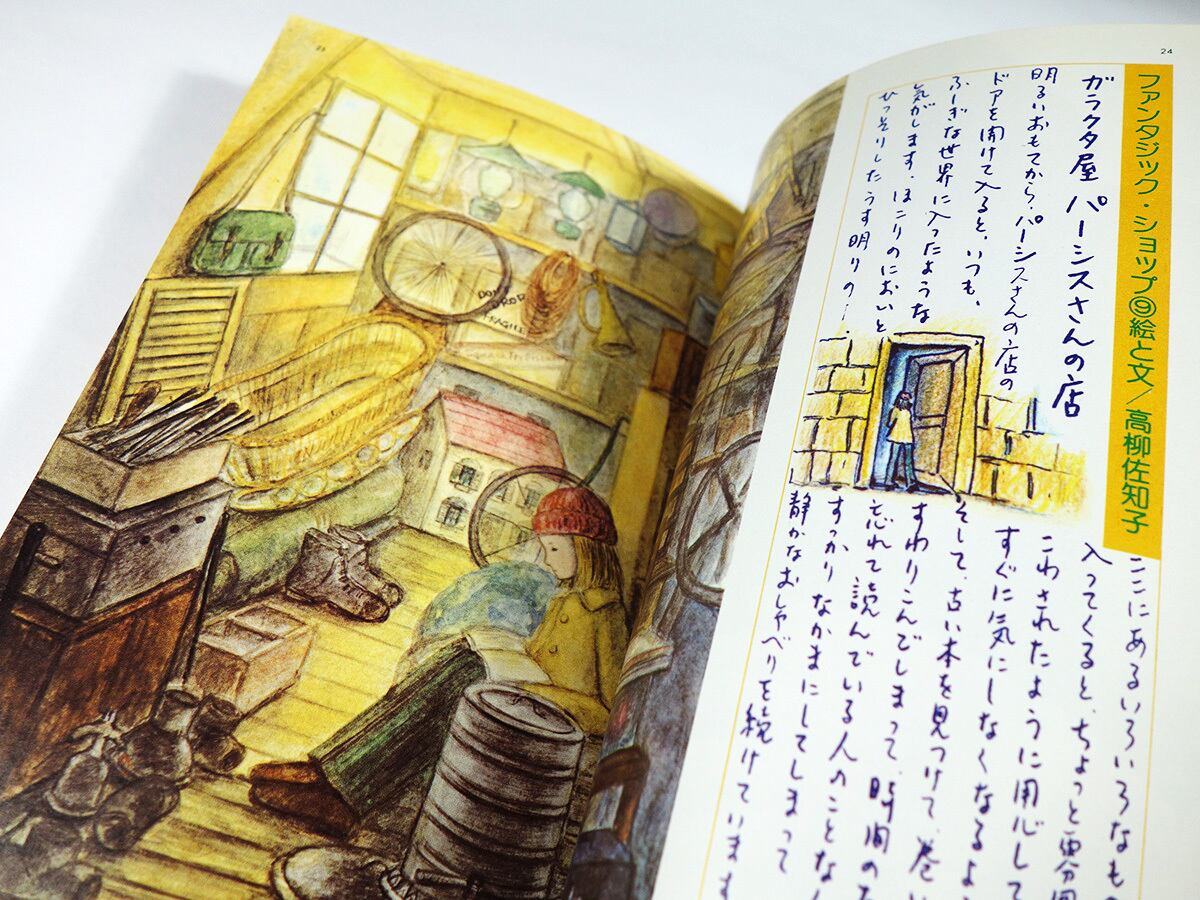 23
DON'T DROP
FRAGILE
24
ファンタジック・ショップ⑨絵と文／高柳佐知子
ガラクタ屋 パーシスさんの店
明るいおもてから、パーシスさんの店の
ドアを開けて入ると、いつも、
ふしぎな世界に入ったような
気がします。ほこりのにおいと
ひっそりしたうす明りの…
ここにあるいろいろなもの
入ってくると、ちょっと
こわされたように用心して
すぐに気にしなくなるよ
そして、古い本を見つけて、巻い
すわりこんでしまって、時間の
忘れて読んでいる人のことなん
すっかりなかまにしてしまって
静かなおしゃべりを続けています